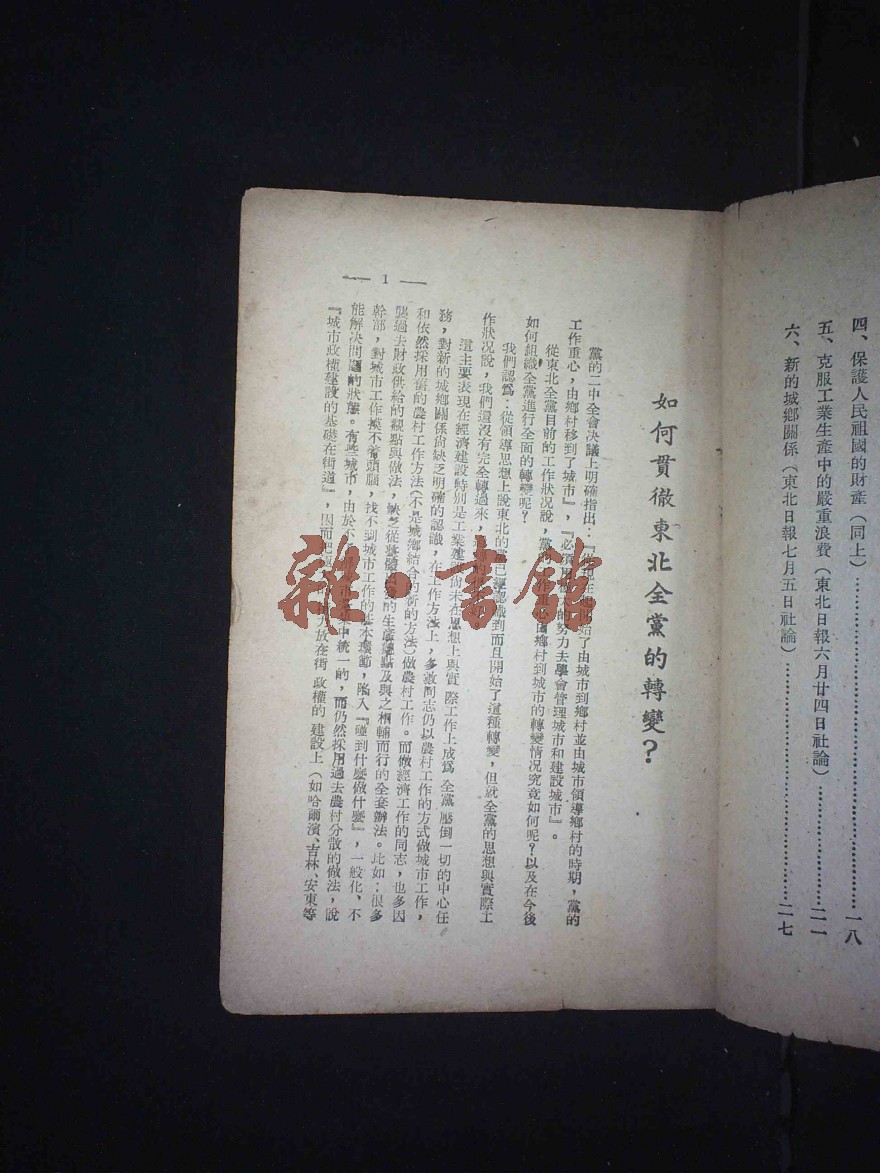 四、保護人民祖國的財產（同上）……一八
五、克服工業生產中的嚴重浪費（東北日報六月廿四日社論）……二一
六、新的城鄉關係（東北日報七月五日社論）……二七
如何貫徹東北全黨的轉變？
黨的二中全會決議上明確指出：『 開始了由城市到鄉村並由城市領導鄉村的時期，黨的
工作重心，由鄉村移到了城市』，『必須用 的努力去學會管理城市和建設城市』。
從東北全黨目前的工作狀况說，黨 由鄉村到城市的轉變情况究竟如何呢？以及在今後
如何組織全黨進行全面的轉變呢？
我們認爲：從領導思想上說東北的黨已經認識到而且開始了這種轉變，但就全黨的思想與實際工
作狀况說，我們還沒有完全轉過來，
這主要表現在經濟建設特別是工業建設尚未在思想上與實際工作上成爲全黨壓倒一切的中心任
務，對新的城鄉關係尙缺乏明確的認識，在工作方法上，多數同志仍以農村工作的方式做城市工作，
和依然採用舊的農村工作方法（不是城鄉結合的新的方法）做農村工作。而做經濟工作的同志，也多因
襲過去財政供給的觀點與做法，缺乏從整體 的生產觀點及與之相輔而行的全套辦法。比如：很多
幹部，對城市工作摸不着頭腦，找不到城市工作的基本環節，陷入『碰到什麼做什麼』，一般化、不
能解決問題的狀態。有些城市，由於不 集中統一的，而仍然採用過去農村分散的做法，說
『城市政權建設的基礎在街道』，因而把 力放在街政權的建設上（如哈爾濱、吉林、安東等
— 1 —
雜·書館